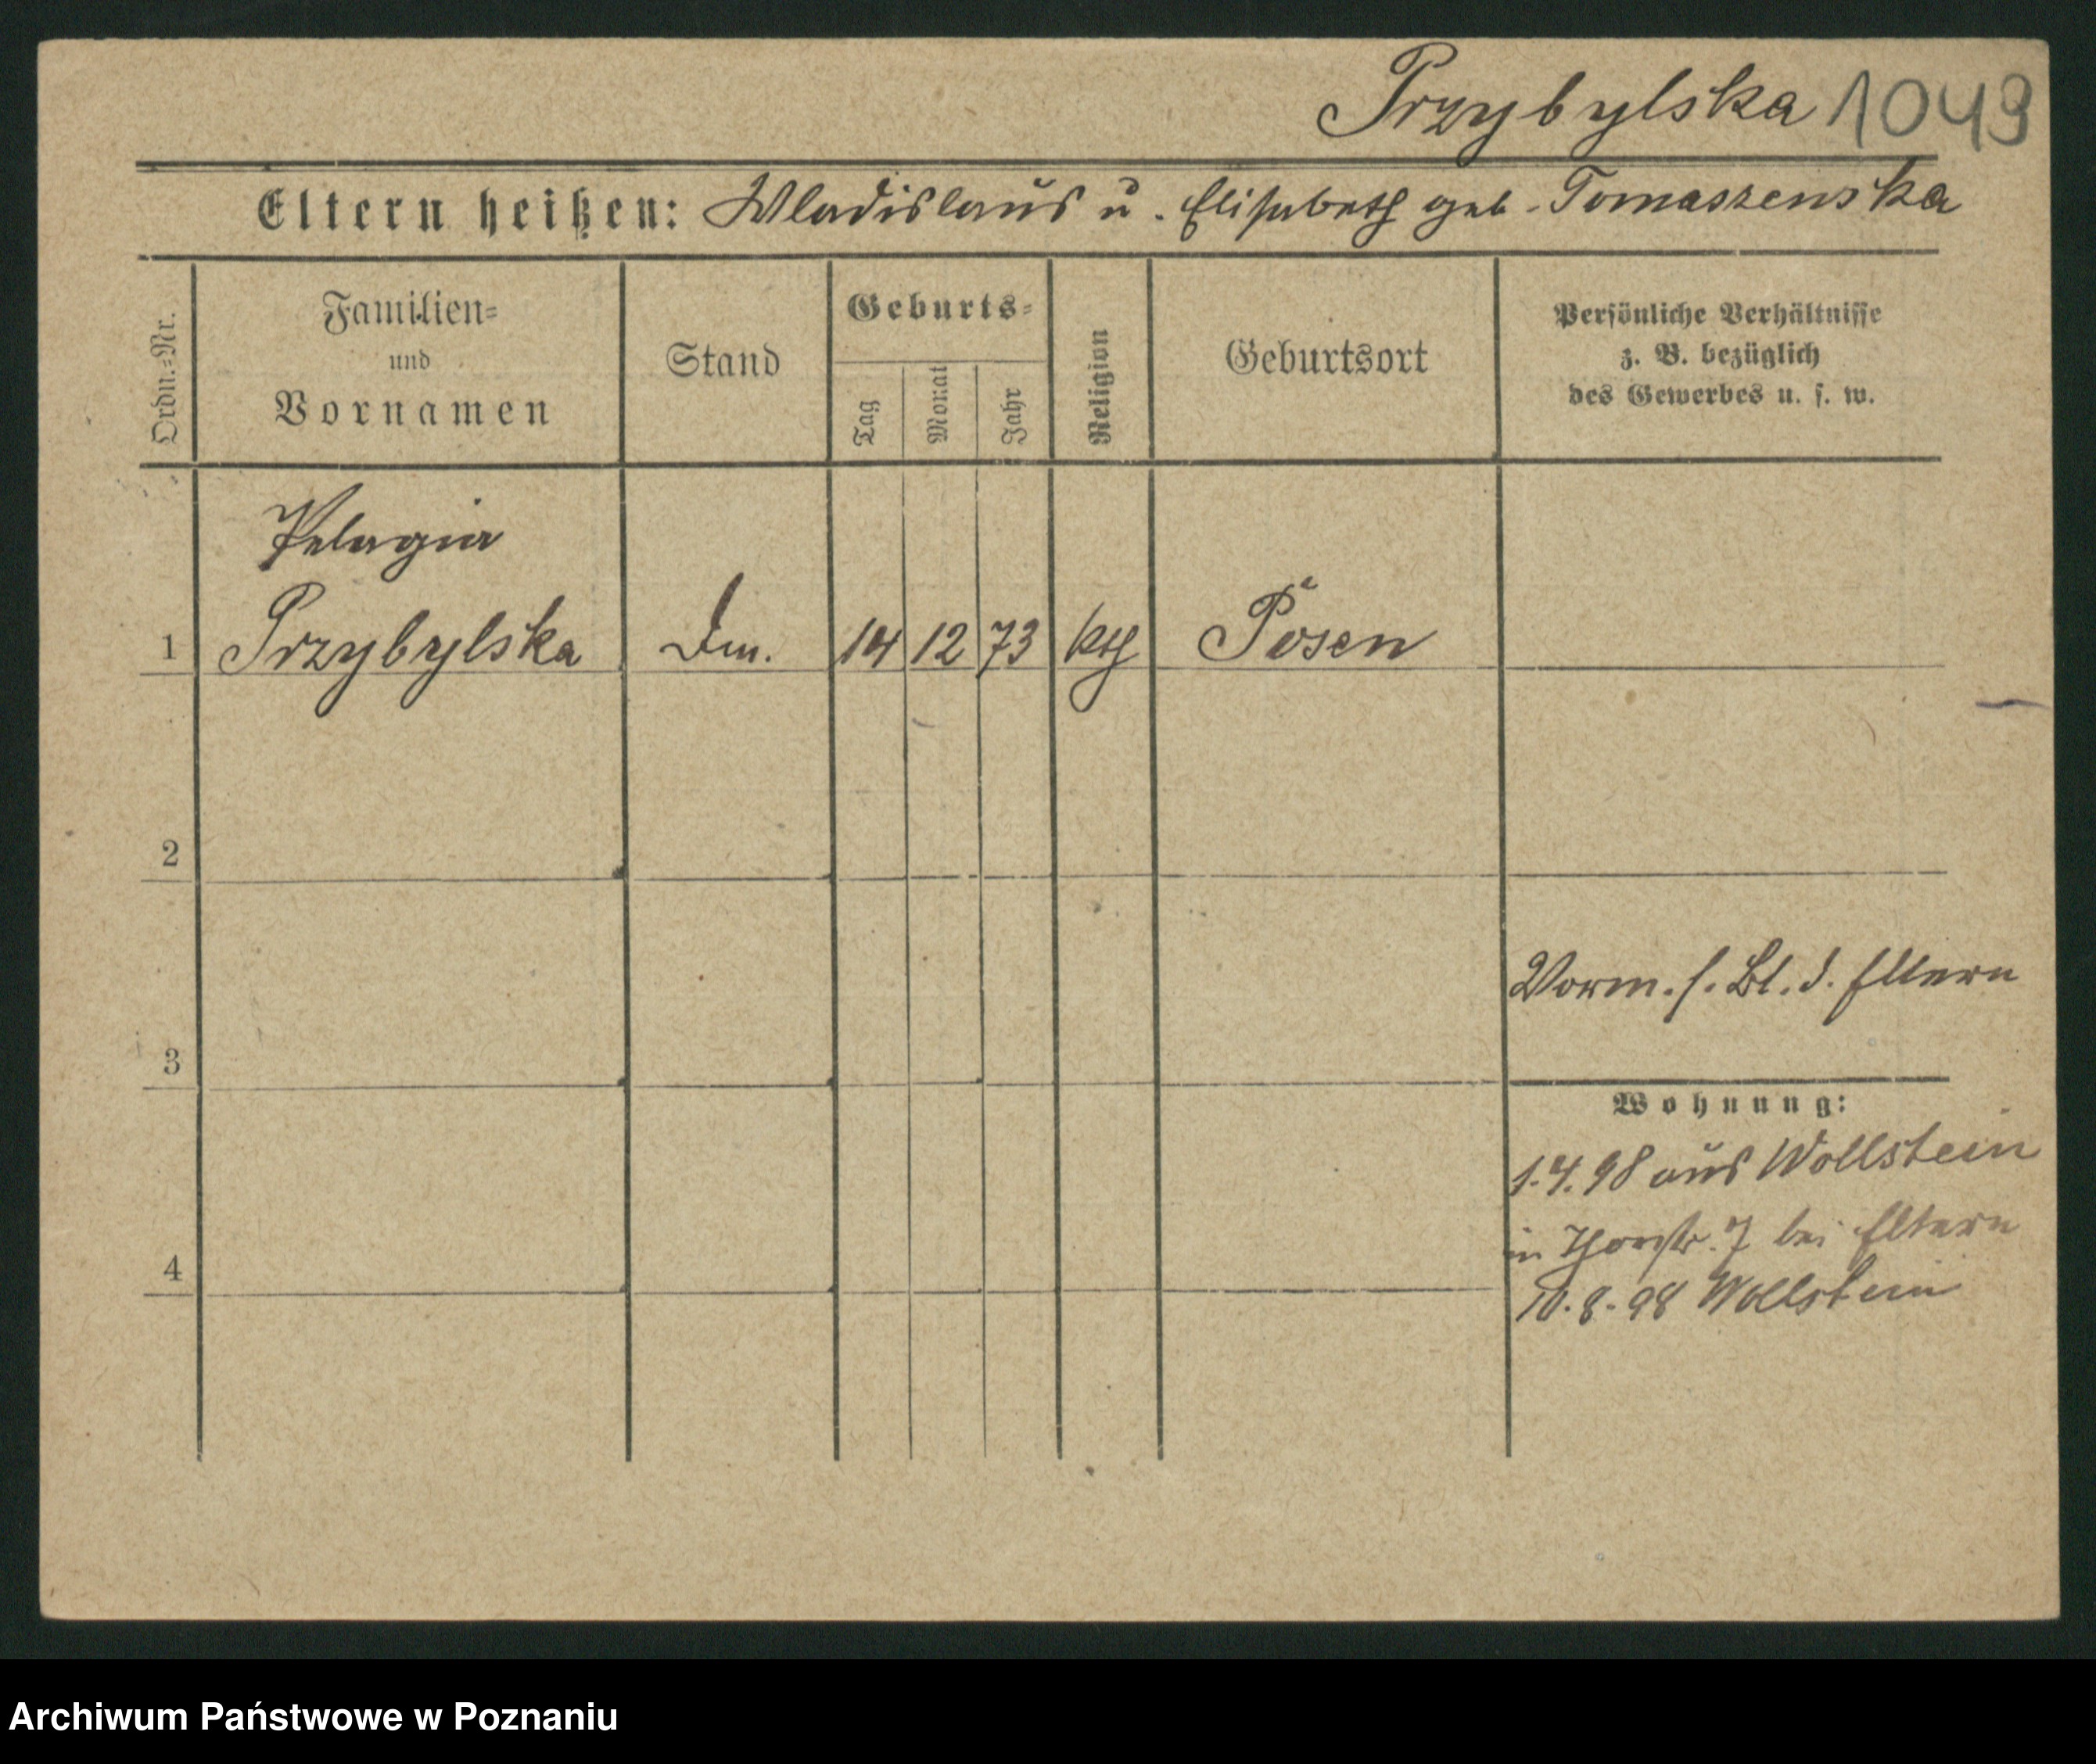 Przybylska 1049
Eltern heißen: Wladislaus u. Elisabeth geb. Tomaszewska
Ordn.=Nr.
Familien=
und
Vornamen
Stand
Geburts=
Tag
Monat
Jahr
Religion
Geburtsort
Persönliche Verhältnisse
z. B. bezüglich
des Gewerbes u. s. w.
Pelagia
1 Przybylska 14 12 73 kth Posen
2
Vorm. s. Bl. d. Eltern
3
Wohnung:
1.4.98 aus Wollstein
in Thorstr. 7 bei Eltern
4
10.8.98 Wollstein
Archiwum Państwowe w Poznaniu